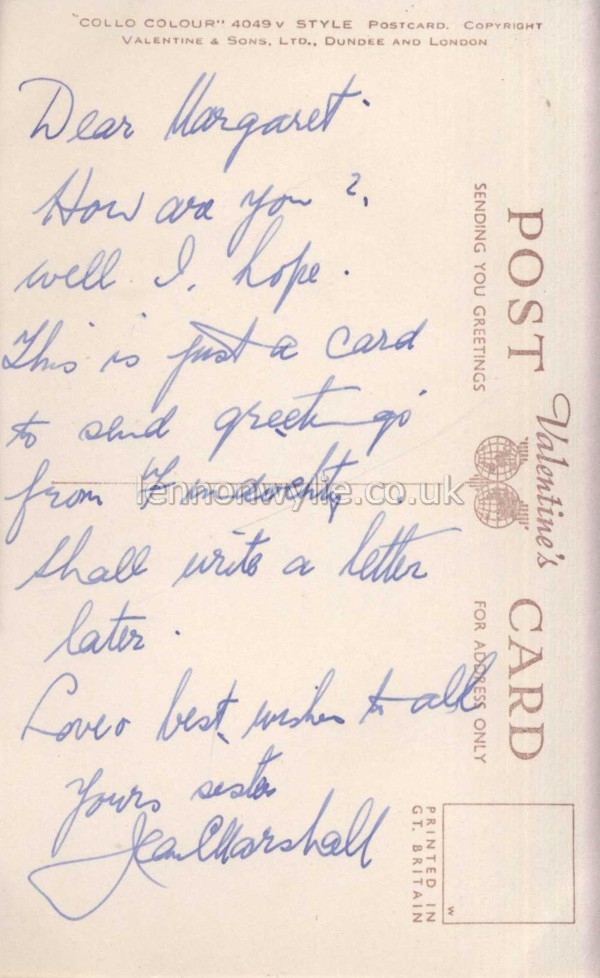 "COLLO COLOUR" 4049V STYLE POSTCARD. COPYRIGHT
VALENTINE & SONS, LTD., DUNDEE AND LONDON
Dear Margaret.
How are you?,
well I, hope.
This is just a card
to send greetings
from Findochty.
Shall write a letter
later.
Love & best wishes to all
Yours sister
Jean Marshall
POST CARD
SENDING YOU GREETINGS
Valentine's
FOR ADDRESS ONLY
PRINTED IN
GT. BRITAIN
W
lennonwylie.co.uk